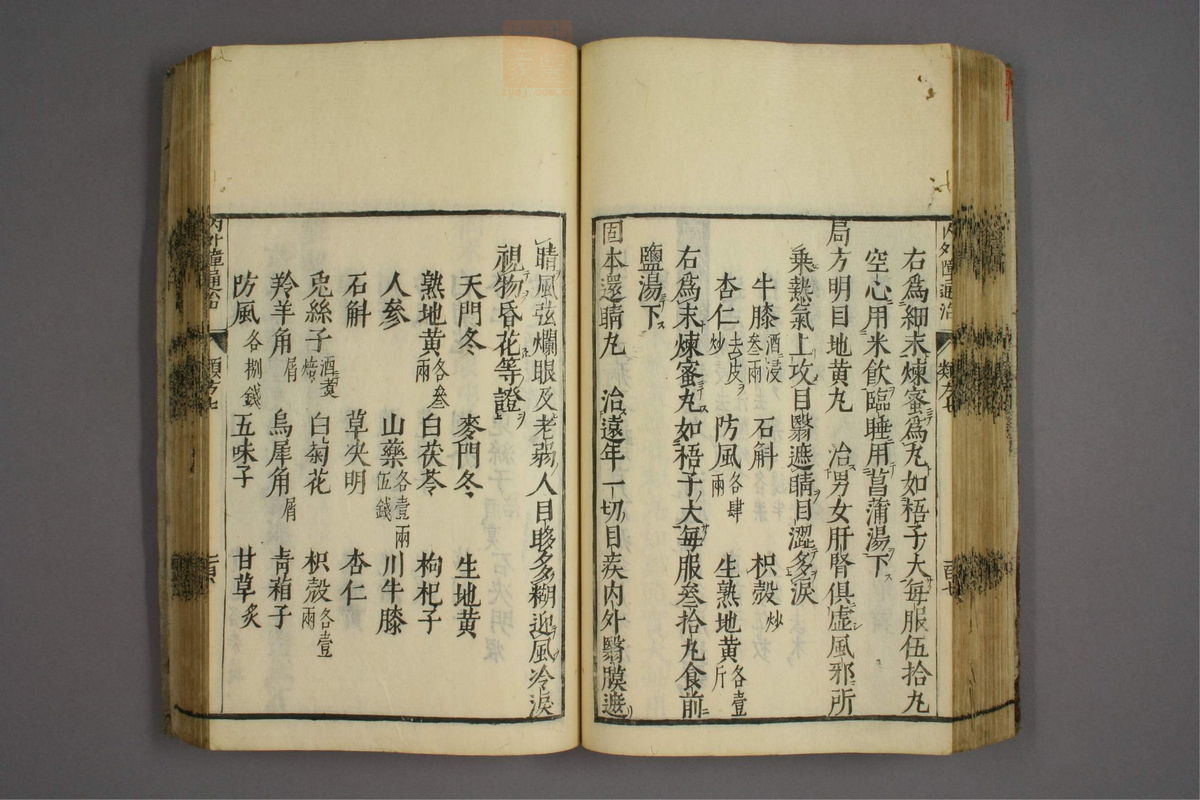 右爲細末煉蜜爲丸如梧子大每服伍拾丸
空心用米飲臨睡用菖蒲湯下
局方明目地黃丸 治男女肝腎俱虛風邪所
乘熱氣上攻目翳遮睛目澀多淚
牛膝酒浸叁兩 石斛 枳殼炒
杏仁去皮炒 防風各肆兩 生熟地黃各壹斤
右爲末煉蜜丸如梧子大每服叁拾丸食前
鹽湯下
固本還睛丸 治遠年一切目疾內外翳膜遮
睛風弦爛眼及老弱人目眵多糊迎風冷淚
視物昏花等證
天門冬 麥門冬 生地黃
熟地黃各叁兩 白茯苓 枸杞子
人參 山藥各壹兩伍錢 川牛膝
石斛 草決明 杏仁
兎絲子酒煮焙 白菊花 枳殼各壹兩
羚羊角屑 烏犀角屑 靑葙子
防風各捌錢 五味子 甘草炙
內外障通治 類方七